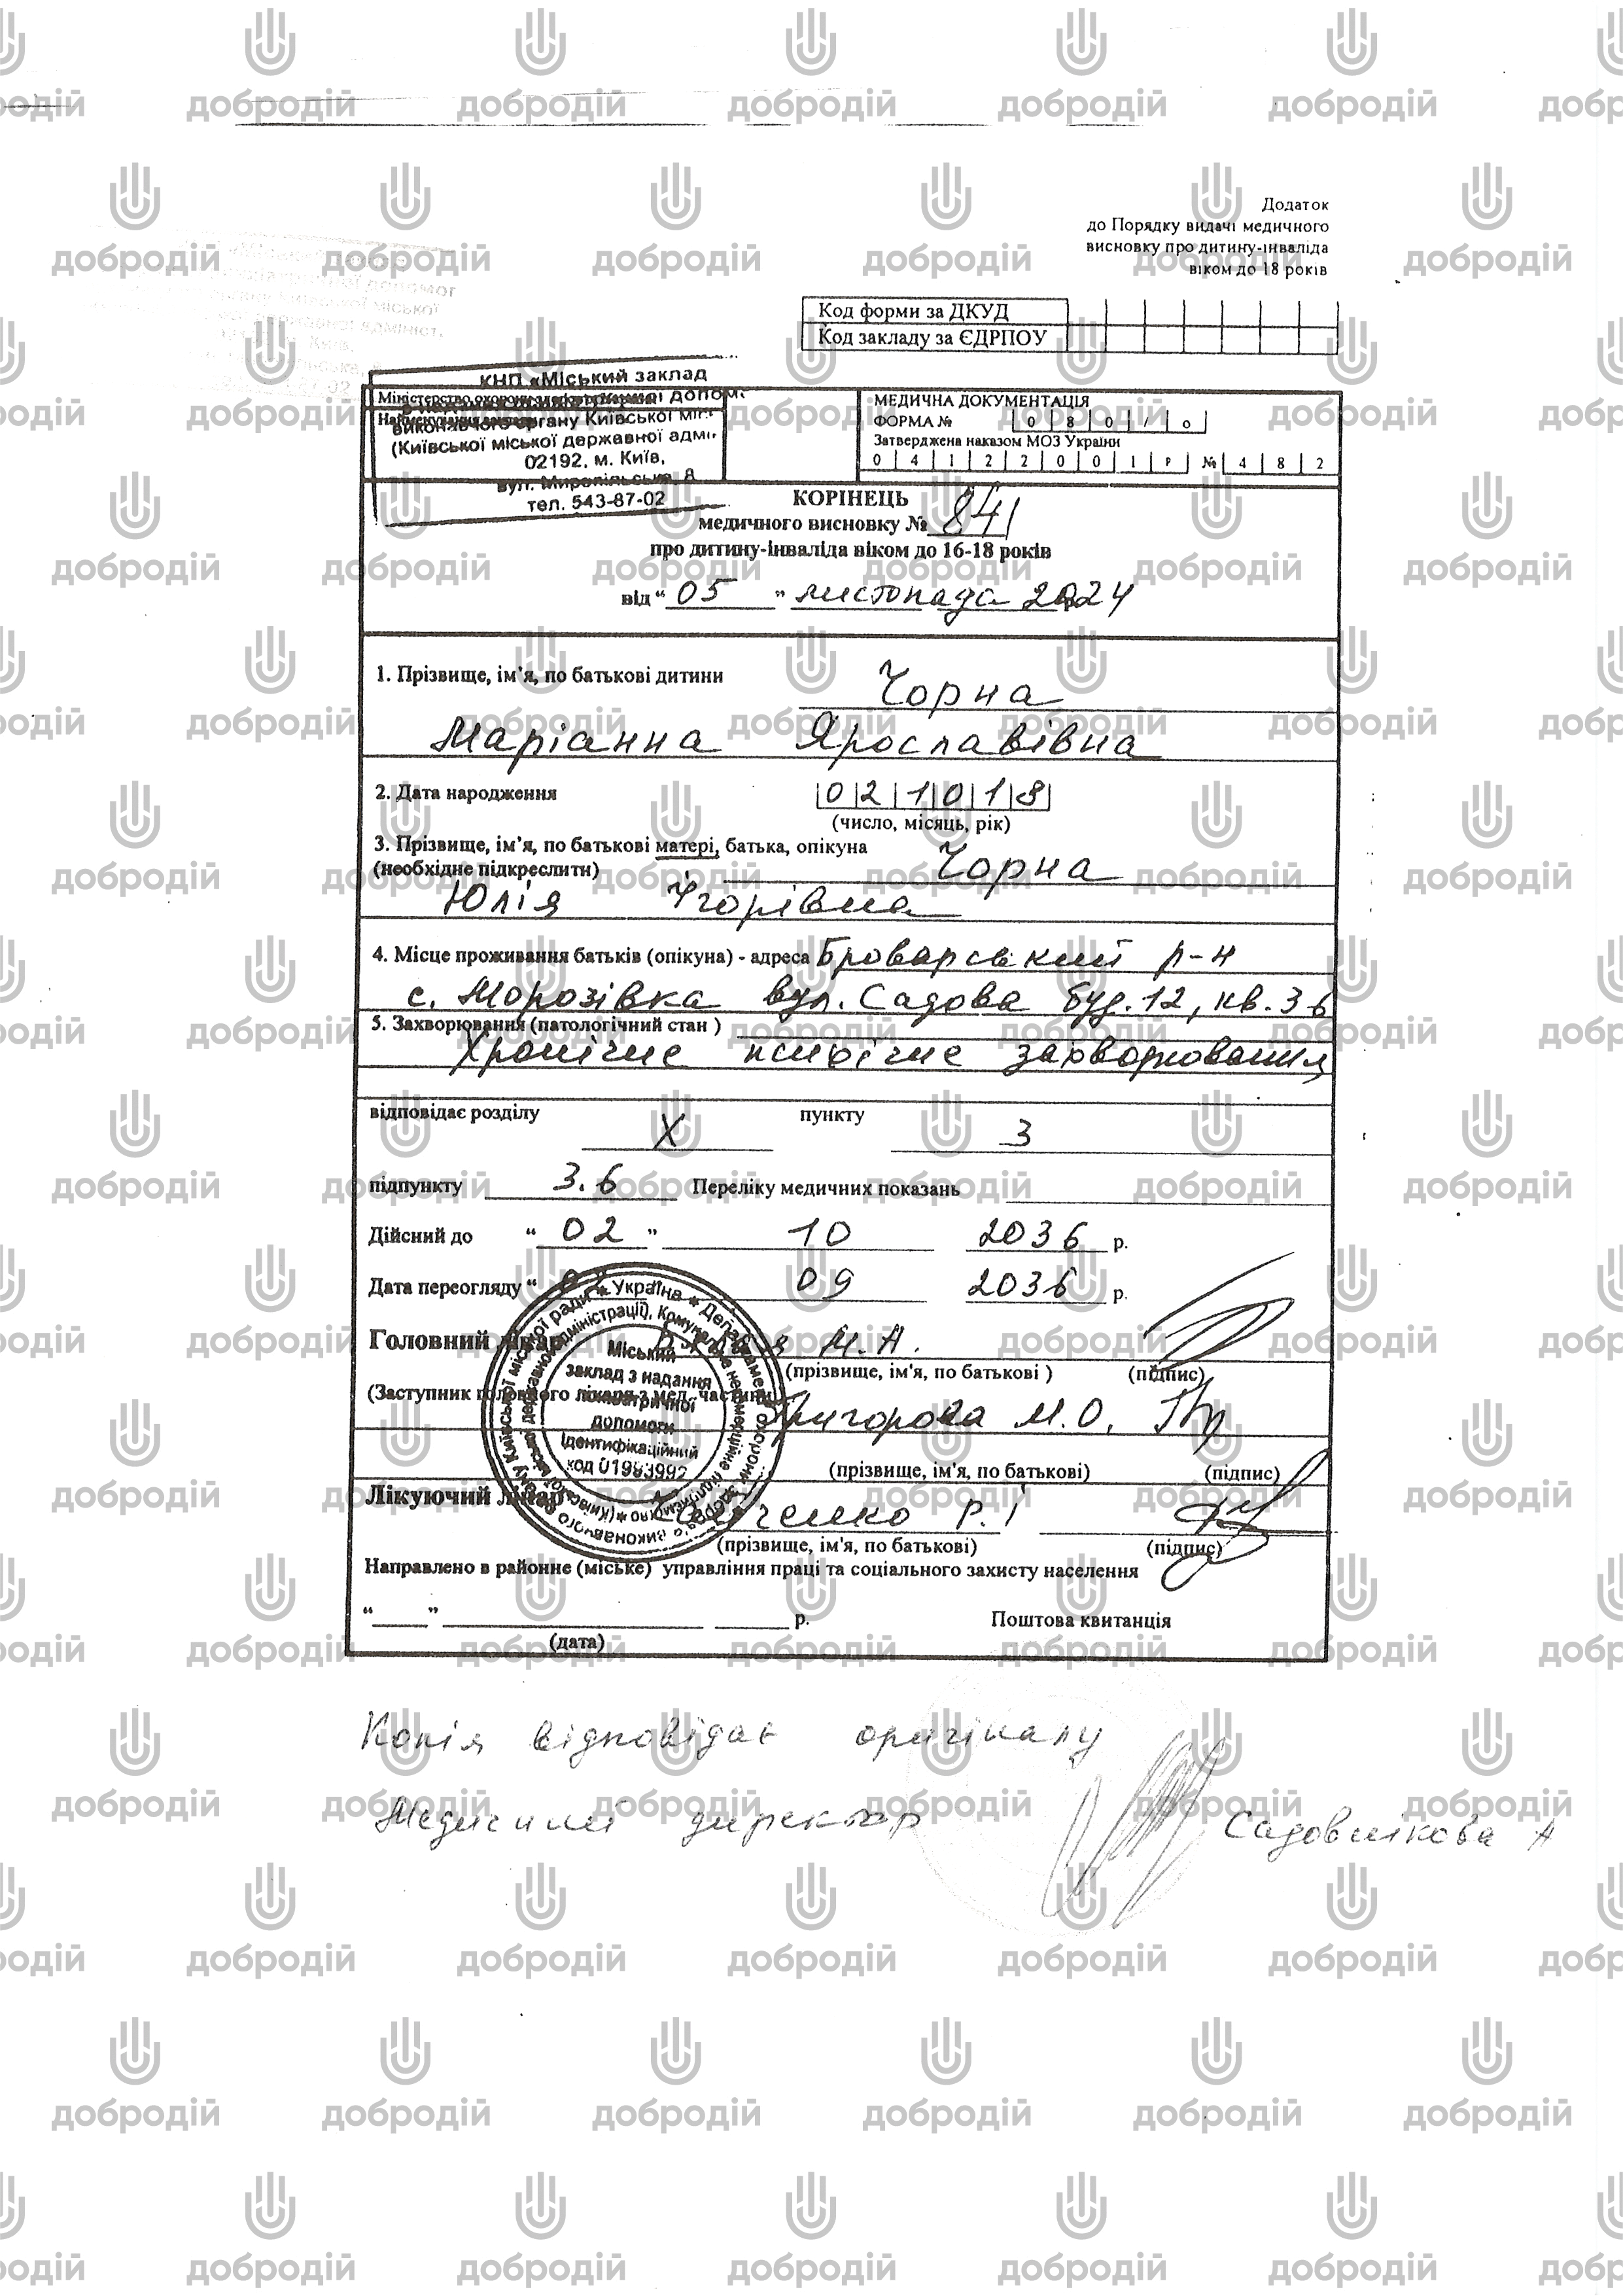 Додаток
до Порядку видачі медичного
висновку про дитину-інваліда
віком до 18 років
Код форми за ДКУД
Код закладу за ЄДРПОУ
КНП «Міський заклад
Міністерство охорони
виконавчого органу Київської
(Київської міської державної
02192, м. Київ,
вул. Миропільська, 8
тел. 543-87-02
МЕДИЧНА ДОКУМЕНТАЦІЯ
ФОРМА № 0 8 0 / о
Затверджена наказом МОЗ України
0 4 1 2 2 0 0 1 Р № 4 8 2
КОРІНЕЦЬ
медичного висновку № 841
про дитину-інваліда віком до 16-18 років
від “ 05 ” листопада 2024
1. Прізвище, ім'я, по батькові дитини Чорна
Маріанна Ярославівна
2. Дата народження 0 2 1 0 1 8
(число, місяць, рік)
3. Прізвище, ім'я, по батькові матері, батька, опікуна
(необхідне підкреслити) Чорна
Юлія Ігорівна
4. Місце проживання батьків (опікуна) - адреса Броварський р-н
с. Морозівка вул. Садова буд. 12, кв. 36
5. Захворювання (патологічний стан )
Хронічне психічне захворювання
відповідає розділу X пункту 3
підпункту 3.6 Переліку медичних показань
Дійсний до “ 02 ” 10 2036 р.
Дата переогляду “ 02 09 2036 р.
Головний лікар М.А.
(прізвище, ім'я, по батькові ) (підпис)
(Заступник головного лікаря з мед. частини)
Григорова М.О.
(прізвище, ім'я, по батькові) (підпис)
Лікуючий лікар Р.І
(прізвище, ім'я, по батькові) (підпис)
Міський
заклад з надання
психіатричної
допомоги
Ідентифікаційний
код 01993992
Направлено в районне (міське) управління праці та соціального захисту населення
“ ” р. Поштова квитанція
(дата)
Копія відповідає оригіналу
Медичний директор Садовнікова А
добродій